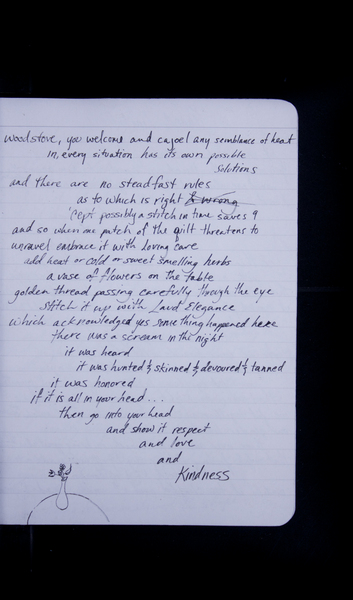 woodstove, you welcome and cajoel any semblance of heat
in, every situation has its own possible
solutions
and there are no steadfast rules
as to which is right & wrong
'cept possibly a stitch in time saves 9
and so when one patch of the quilt threatens to
unravel embrace it with loving care
add heat or cold or sweet smelling herbs
a vase of flowers on the table
golden thread passing carefully through the eye
stitch it up with Elegance
which acknowledged yes something happened here
there was a scream in the night
it was heard
it was hunted & skinned & devoured & tanned
it was honored
if it is all in your head...
then go into your head
and show it respect
and love
and
Kindness